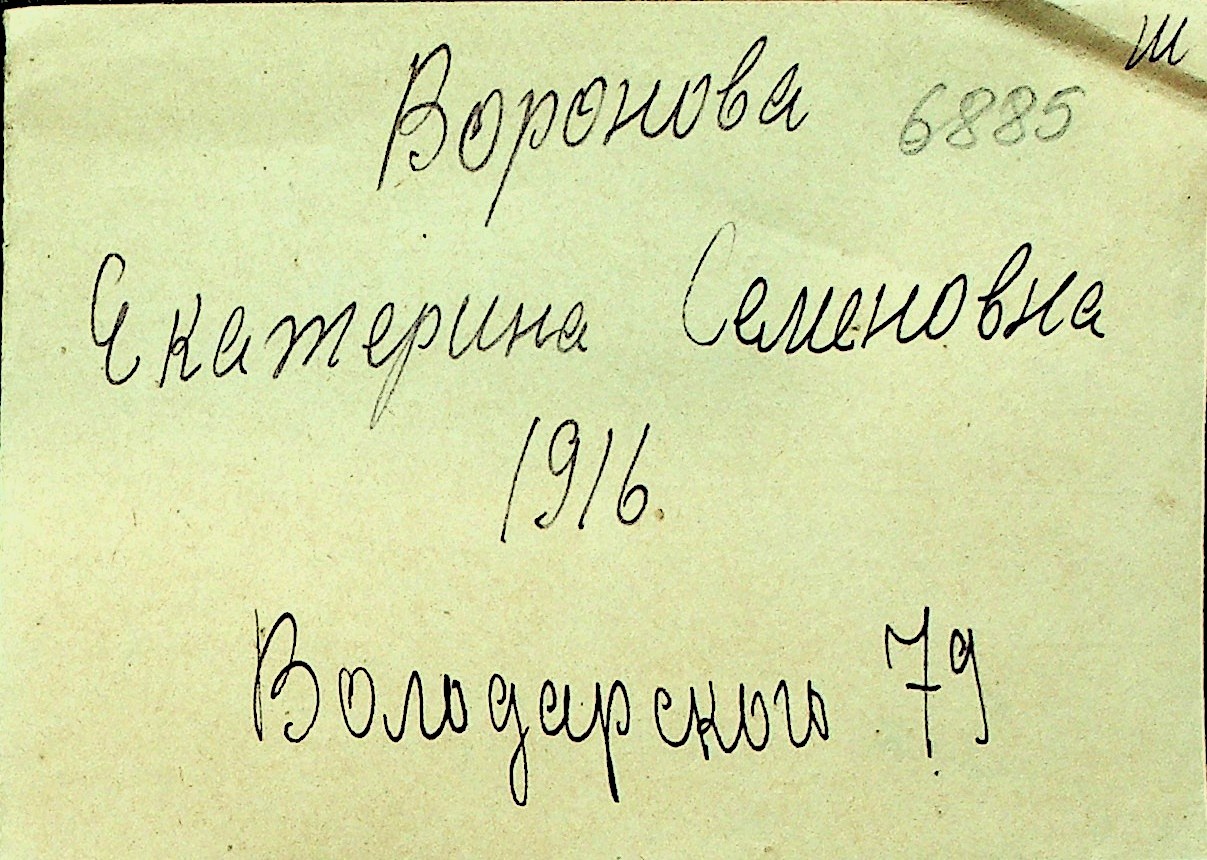 ш
Воронова 6885
Екатерина Семеновна
1916
Володарского 79